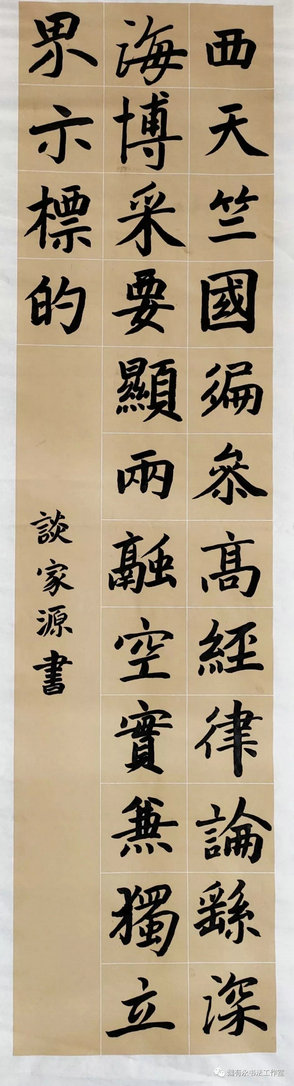 西天竺國徧叅高經律論繇深
海博采要顯兩融空實兼獨立
界示標的
談家源書
有永书法工作室